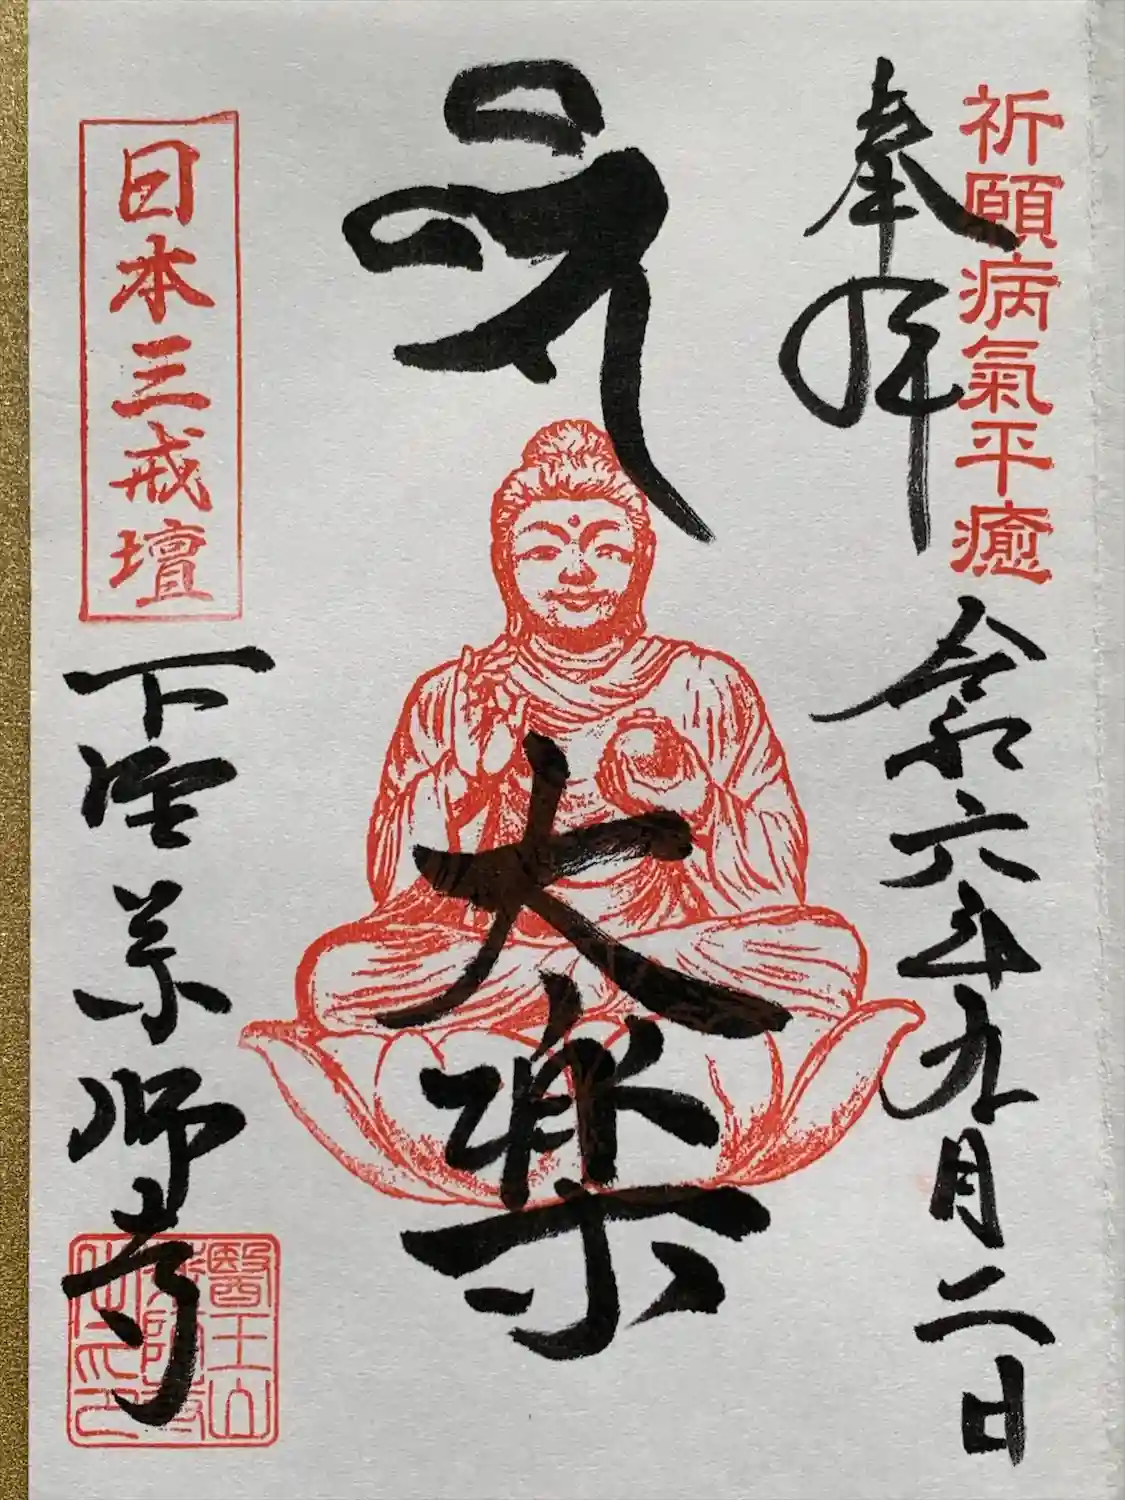 祈願病氣平癒
奉拝
令和六年九月二日
大楽
日本三戒壇
下野薬師寺
醫王山